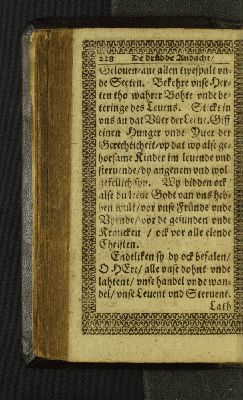 228 De drüdde Andacht/
Gelouen/ane allen twespalt vn-
de Secten. Bekehre vnse Her-
ten tho wahrer Bohte vnde be-
teringe des Leuens. Sticke in
vns an dat Vüer der Leeue. Giff
einen Hunger vnde Duer der
Gerechticheit/vp dat wy alse ge-
horsame Kinder im leuende vnd
steruende/dy angenem vnd wol
gefellich syn. Wy bidden ock
alse du leeue Godt van vns heb-
ben wult/vor vnse Fründe vnde
Vyende/vor de gesunden vnde
Krancken / ock vor alle elende
Christen.
Endtliken sy dy ock befalen/
O HEre/alle vnse dohnt vnde
lahtent/vnse handel vnde wan-
del/vnse Leuent vnd Steruent.
Lath